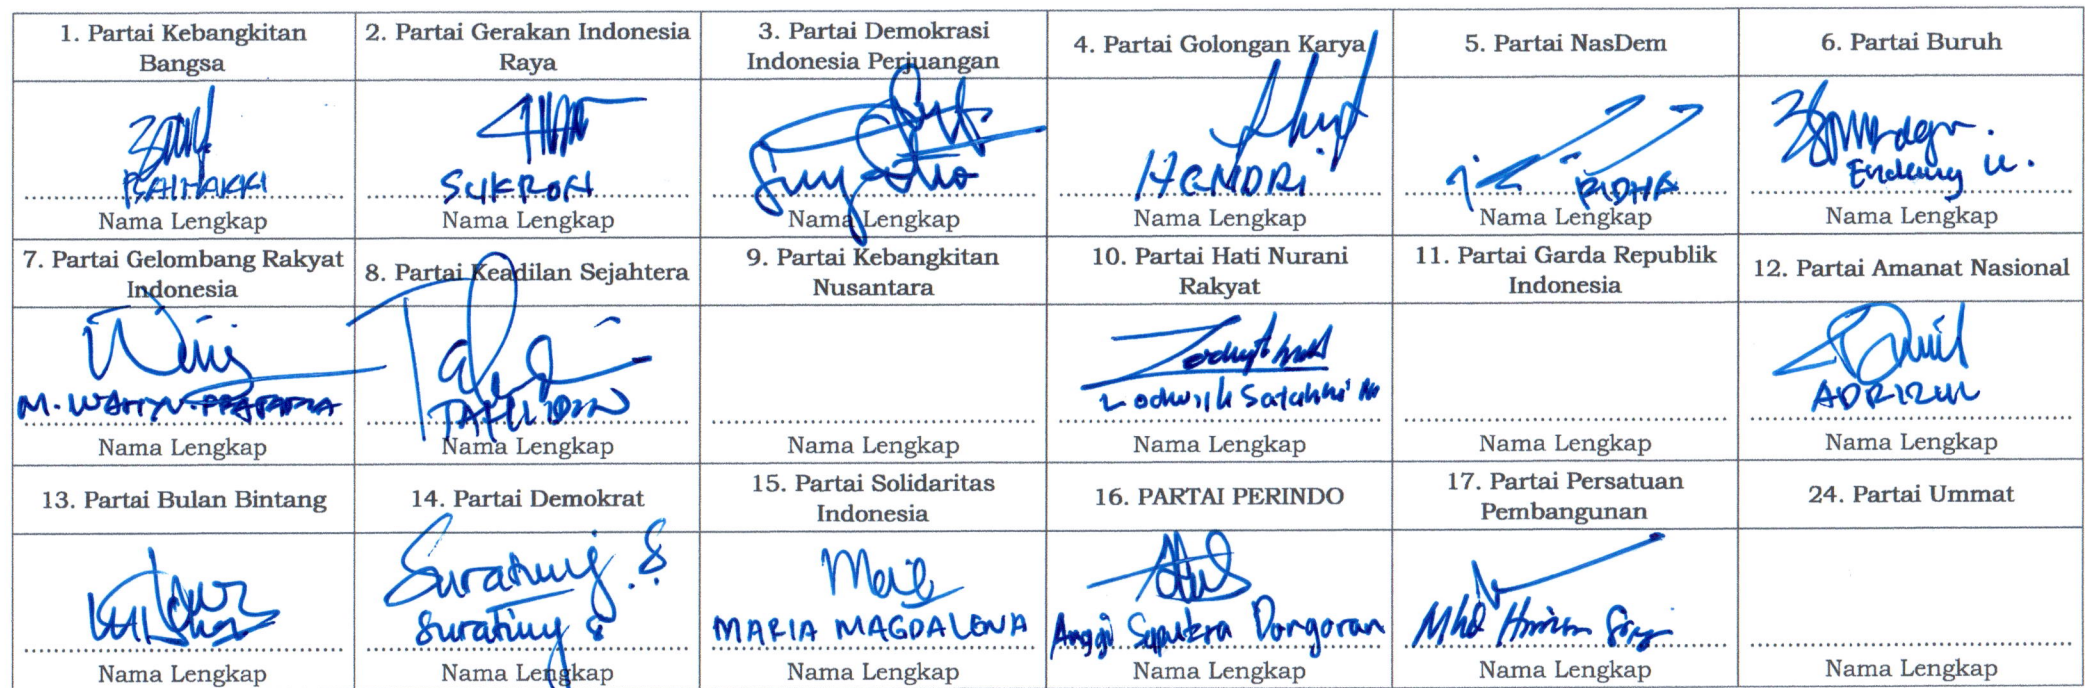 1. Partai Kebangkitan
Bangsa
2. Partai Gerakan Indonesia
Raya
3. Partai Demokrasi
Indonesia Perjuangan
4. Partai Golongan Karya
5. Partai NasDem
6. Partai Buruh
SUKRON
HENDRI
RIDHA
Endang U.
Nama Lengkap
Nama Lengkap
Nama Lengkap
Nama Lengkap
Nama Lengkap
Nama Lengkap
7. Partai Gelombang Rakyat
Indonesia
8. Partai Keadilan Sejahtera
9. Partai Kebangkitan
Nusantara
10. Partai Hati Nurani
Rakyat
11. Partai Garda Republik
Indonesia
12. Partai Amanat Nasional
M. WAHYU
ADRIZUL
Nama Lengkap
Nama Lengkap
Nama Lengkap
Nama Lengkap
Nama Lengkap
Nama Lengkap
13. Partai Bulan Bintang
14. Partai Demokrat
15. Partai Solidaritas
Indonesia
16. PARTAI PERINDO
17. Partai Persatuan
Pembangunan
24. Partai Ummat
MARIA MAGDALENA
Anggi Saputra Dongoran
Mhd
Nama Lengkap
Nama Lengkap
Nama Lengkap
Nama Lengkap
Nama Lengkap
Nama Lengkap